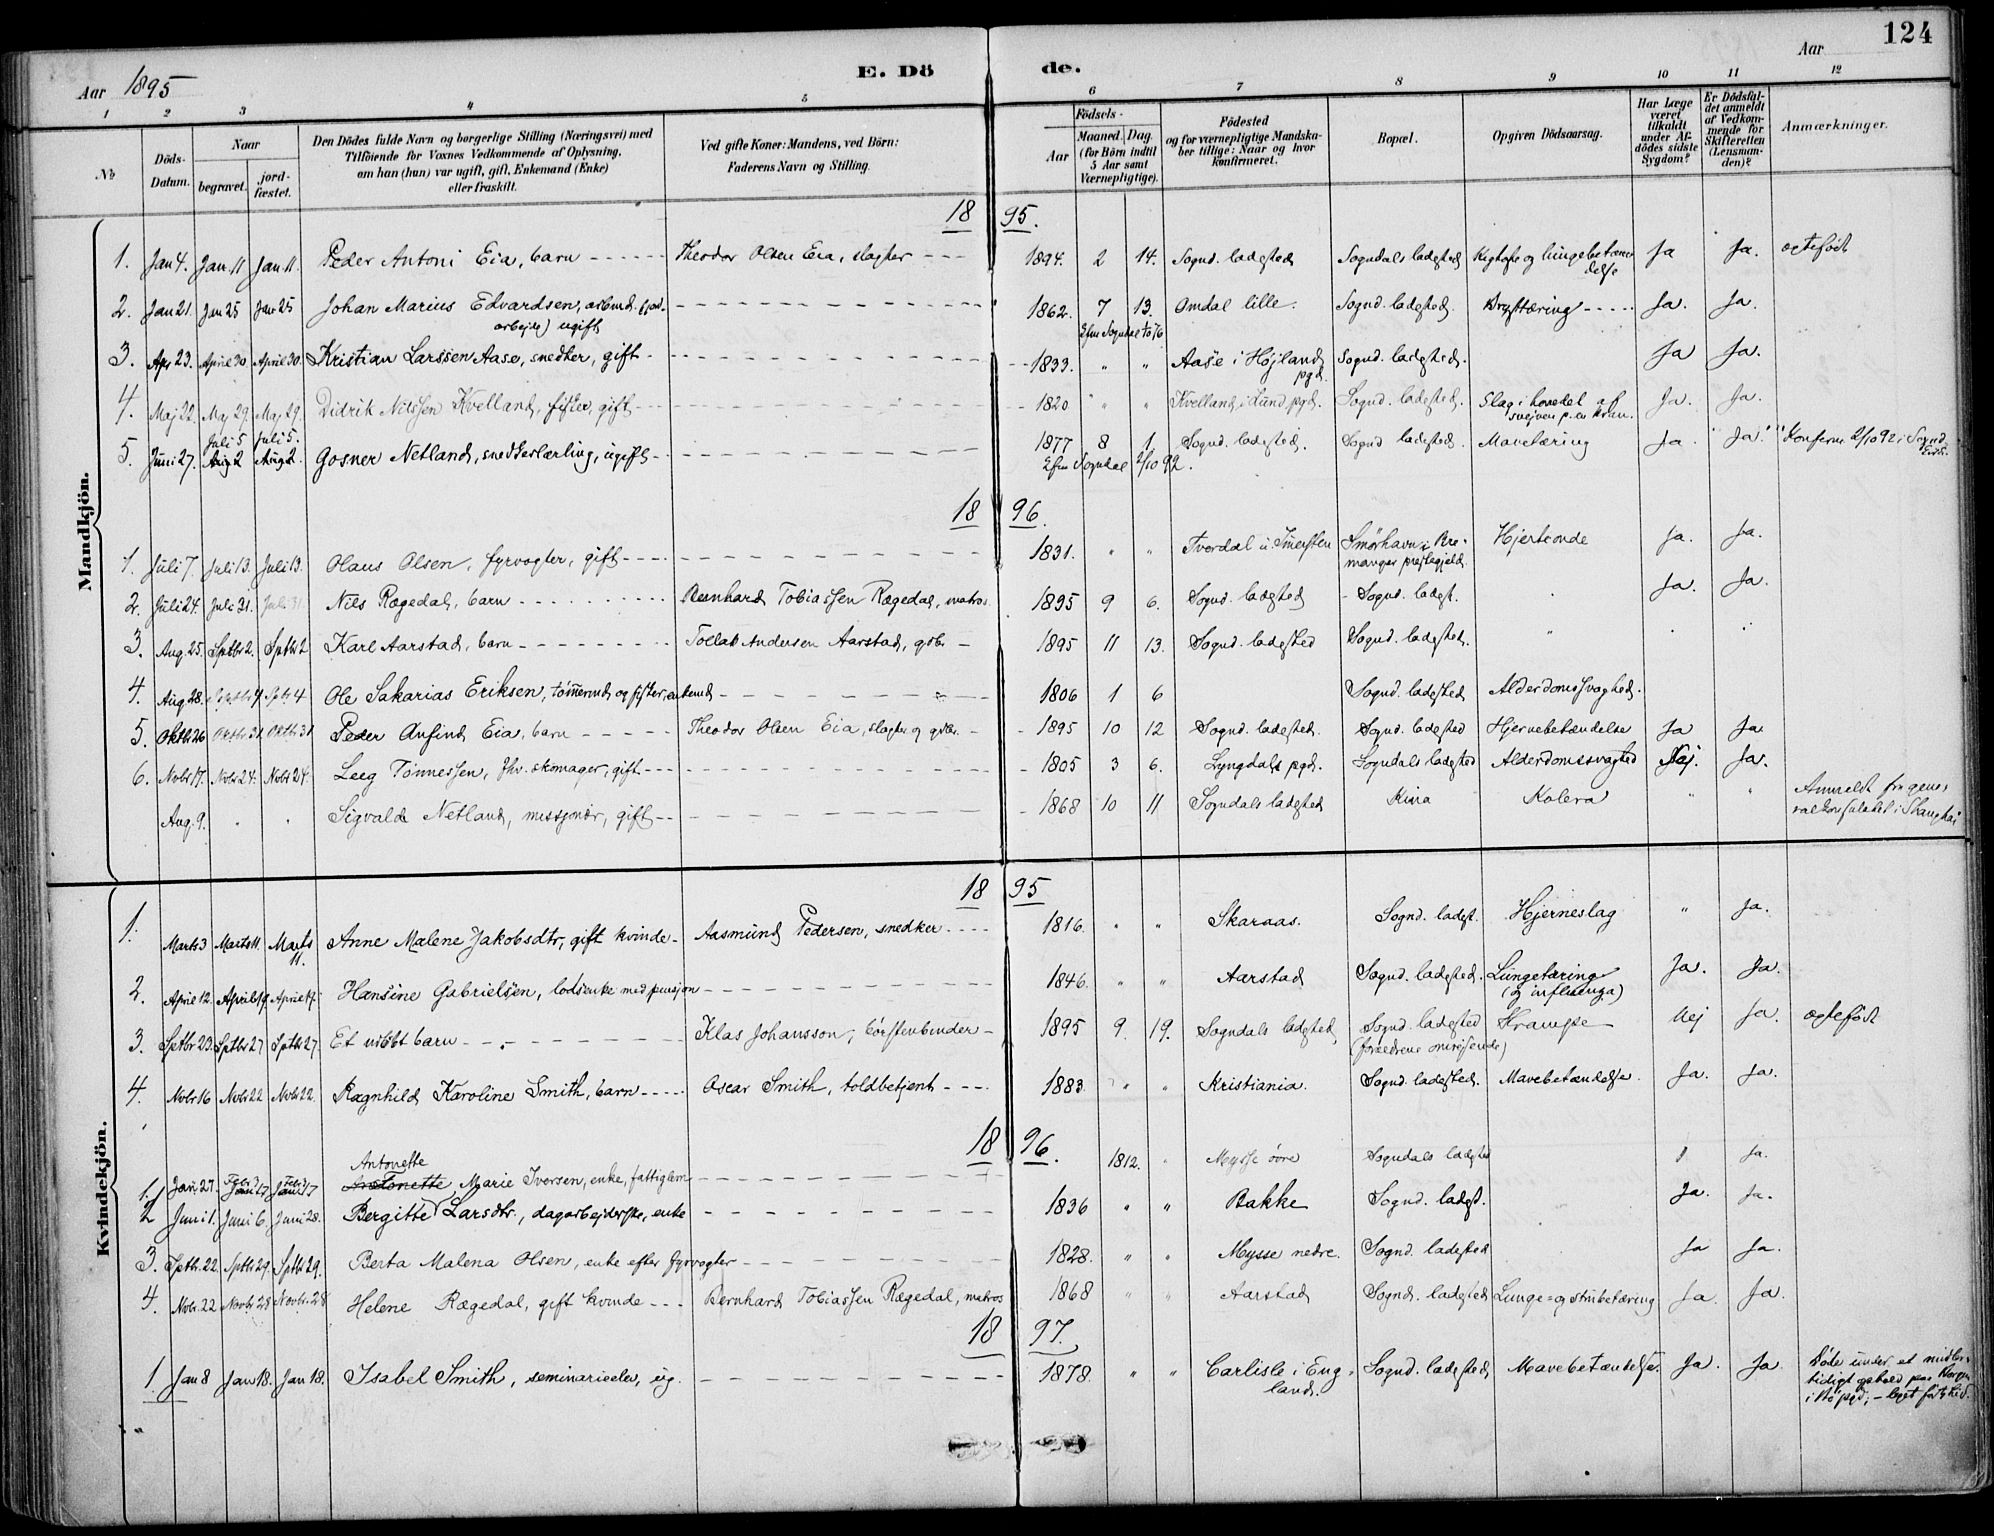 124
Aar 1895 E. Dö de. Aar
1 2 3 4 5 6 7 8 9 10 11 12
No
Döds-Datum.
Naar
begravet.
jord-fæstet.
Den Dödes fulde Navn og borgerlige Stilling (Næringsvei) med
Tilföiende for Voxnes Vedkommende af Oplysning,
om han (hun) var ugift, gift, Enkemand (Enke)
eller fraskilt.
Ved gifte Koner: Mandens, ved Börn:
Faderens Navn og Stilling.
Födsels-
Aar
Maaned. Dag.
(for Börn indtil
5 Aar samt
Værnepligtige).
Födested
og for værnepligtige Mandska-
ber tillige: Naar og hvor
konfirmeret.
Bopæl.
Opgiven Dödsaarsag.
Har Læge
været
tilkaldt
under Af-
dödes sidste
Sygdom?
Er Dödsfal-
det anmeldt
af Vedkom-
mende for
Skifteretten
(Lensman-
den)?
Anmærkninger.
Mandkjön.
18 95.
1. Jan 4. Jan 11 Jan 11. Peder Antoni Eia, barn Theodor Olsen Eia, slagter 1894. 2 14. Sognd. ladested Sogndals ladested Kighoste og lungebetæn-
delse Ja Ja. ægtefödt
2. Jan 21. Jan 25 Jan 25 Johan Marius Edvardsen, arbmd.
arbejde) ugift 1862. 7 13. Omdal lille. Sognd. ladested. Brysttæring Ja. Ja.
3. Apr 23. April 30 April 30. Kristian Larssen Aase, snedker, gift 1833. " " Aase i Højland
pgd. Sognd. ladested. Ja Ja.
4. Maj 22. Maj 29. Maj 29. Didrik Nilssen Kvelland, fisker, gift 1820 " " Kvelland i Lund pgd. Sognd. ladested. Slag i hovedet af
svejven p. en kran. Ja. Ja.
Juli 5 Juli 5.
5. Juni 27. Aug 2 Aug 2. Gosner Netland, snedkerlærling, ugift 1877 8 1. Sognd. ladested. Sognd ladested. Mavetæring Ja. Ja. Konferm. 2/10 92 i Sognd.
Sogndal 2/10 92.
18 96.
1. Juli 7. Juli 13. Juli 13. Olaus Olsen, fyrvogter, gift 1831. " " Tverdal Smörhavn i Bre-
manger prestegjeld. Hjerteonde Ja. Ja.
2. Juli 24. Juli 31. Juli 31. Nils Rægedal, barn Bernhard Tobiassen Rægedal, matros 1895 9 6. Sognd. ladested Sognd. ladst. Ja. Ja.
3. Aug. 25. Septbr 2. Septbr 2 Karl Aarstad, barn Tollak Andersen Aarstad, gdbr. 1895 11 13. Sognd. ladested Sognd. ladested. "
4. Aug 28. Septbr 4 Septbr 4 Ole Sakarias Eriksen, tömmermd og fisker, enkemd 1806 1 6 Sognd. ladested Alderdomssvaghed.
5. Oktbr 26 Oktbr 31 Oktbr 31 Peder Anfind Eia, barn Theodor Olsen Eia, slagter og gdbr. 1895 10 12 Sognd. ladested. Sognd. ladested Hjernebetændelse Ja Ja
6. Novbr 17. Novbr 24. Novbr 24. Leeg Tönnessen, fhv. skomager, gift 1805 3 6. Lyngdals pgd. Sogndals ladested Alderdomssvaghed Nej. Ja.
Aug. 9. " " Sigvald Netland, missjonær, gift 1868 10 11 Sogndals ladested Kina Kolera " " Anmeldt fra gene-
ralkonsulatet i Skanghai
Kvindekjön.
18 95
1. Marts 3 Marts 11. Marts
11. Anne Malene Jakobsdtr, gift kvinde Aasmund Pedersen, snedker 1816. " " Skaraas. Sognd. ladst. Hjerneslag " Ja.
2. April 12. April 17 April 17. Hansine Gabrielsen, lodsenke med pensjon 1846. " " Aarstad Sognd. ladested. Lungetæring
(og influenza) Ja. Ja.
3. Septbr 23. Septbr 27 Septbr 27. Et udöbt barn Klas Johansson, börstenbinder 1895 9. 19. Sogndals ladested Sognd. ladested
(forældrene omrejsende) Krampe Nej Ja. ægtefödt
4. Novbr 16 Novbr 22 Novbr 22. Ragnhild Karoline Smith, barn Oscar Smith, toldbetjent 1883. " " Kristiania. Sognd. ladested. Mavebetændelse. Ja. Ja.
18 96.
Antonette
1. Jan. 27. Febr Jan 17 Marie Iversen, enke, fattiglem 1812. " Mysse övre Sogndals ladested Ja.
2 Juni 1. Juni 6. Juni 28. Bergitte Larsdtr., dagarbejderske, enke 1836 " " Bakke Sognd. ladst. Ja. Ja.
3. Septbr. 22. Septbr 29. Septbr 29. Berta Malena Olsen, enke efter fyrvogter 1828. " " Mysse nedre. Sognd. ladested Ja Ja.
4. Novbr. 22 Novbr 28 Novbr. 28 Helene Rægedal, gift kvinde Bernhard Tobiassen Rægedal, matros 1868 " " Aarstad Sognd. ladested Lunge- og strubetæring Ja. Ja.
18 97.
1. Jan 8 Jan 18. Jan 18. Isabel Smith, seminarieelev, ug. 1878. " " Carlisle i Eng-
land. Sognd. ladested Mavebetændelse. Ja. Ja Döde under et midler-
tidigt ophold paa